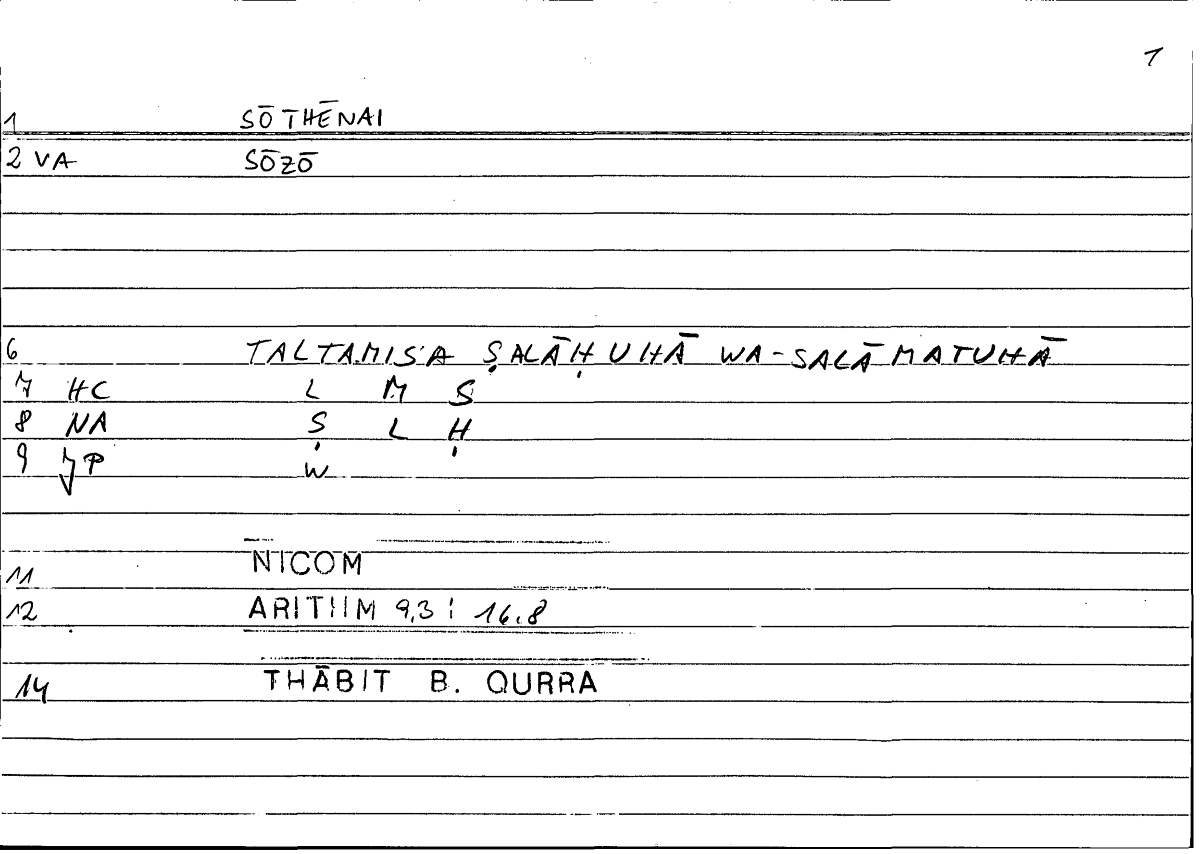 1
1 SŌTHĒNAI
2 VA SŌZŌ
6 TALTAMISA ṢALĀḤUHĀ WA-SALĀMATUHĀ
7 HC L M S
8 NA Ṣ L Ḥ
9 W
11 NICOM
12 ARITHM 9,3 : 16.8
14 THĀBIT B. QURRA